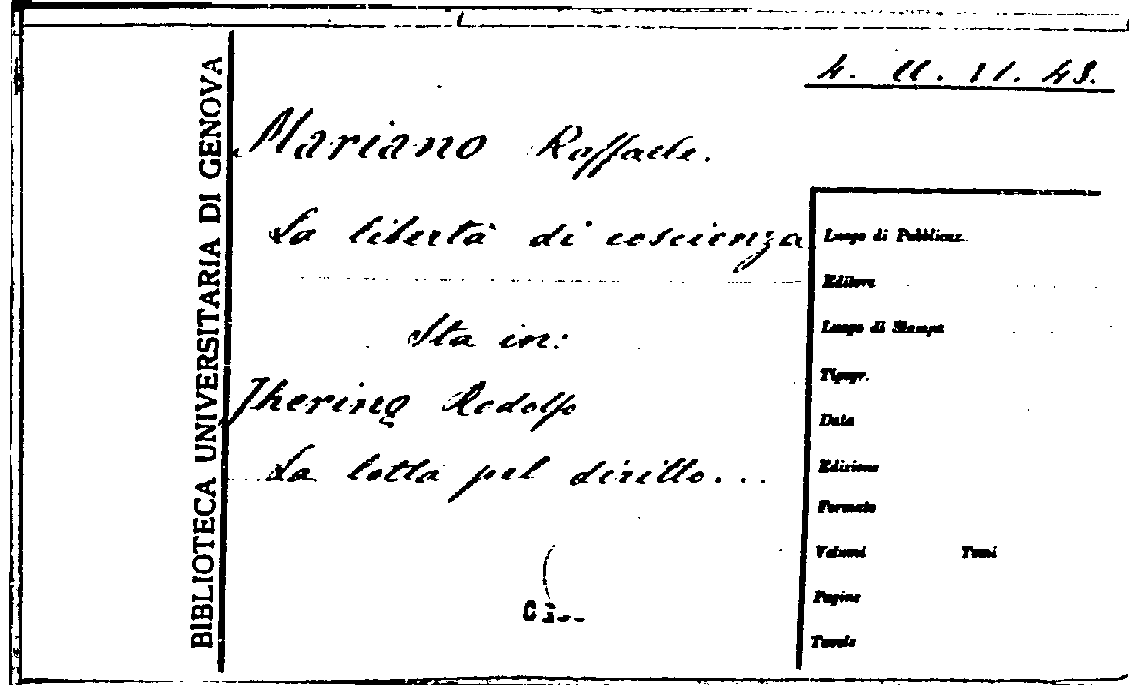 BIBLIOTECA UNIVERSITARIA DI GENOVA
4. 11. 11. 48.
Mariano Raffaele.
La libertà di coscienza
Sta in:
Jhering Rodolfo
La lotta pel diritto...
Luogo di Pubblicaz.
Editore
Luogo di Stampa
Tipogr.
Data
Edizione
Formato
Volumi Tomi
Pagine
Tavole